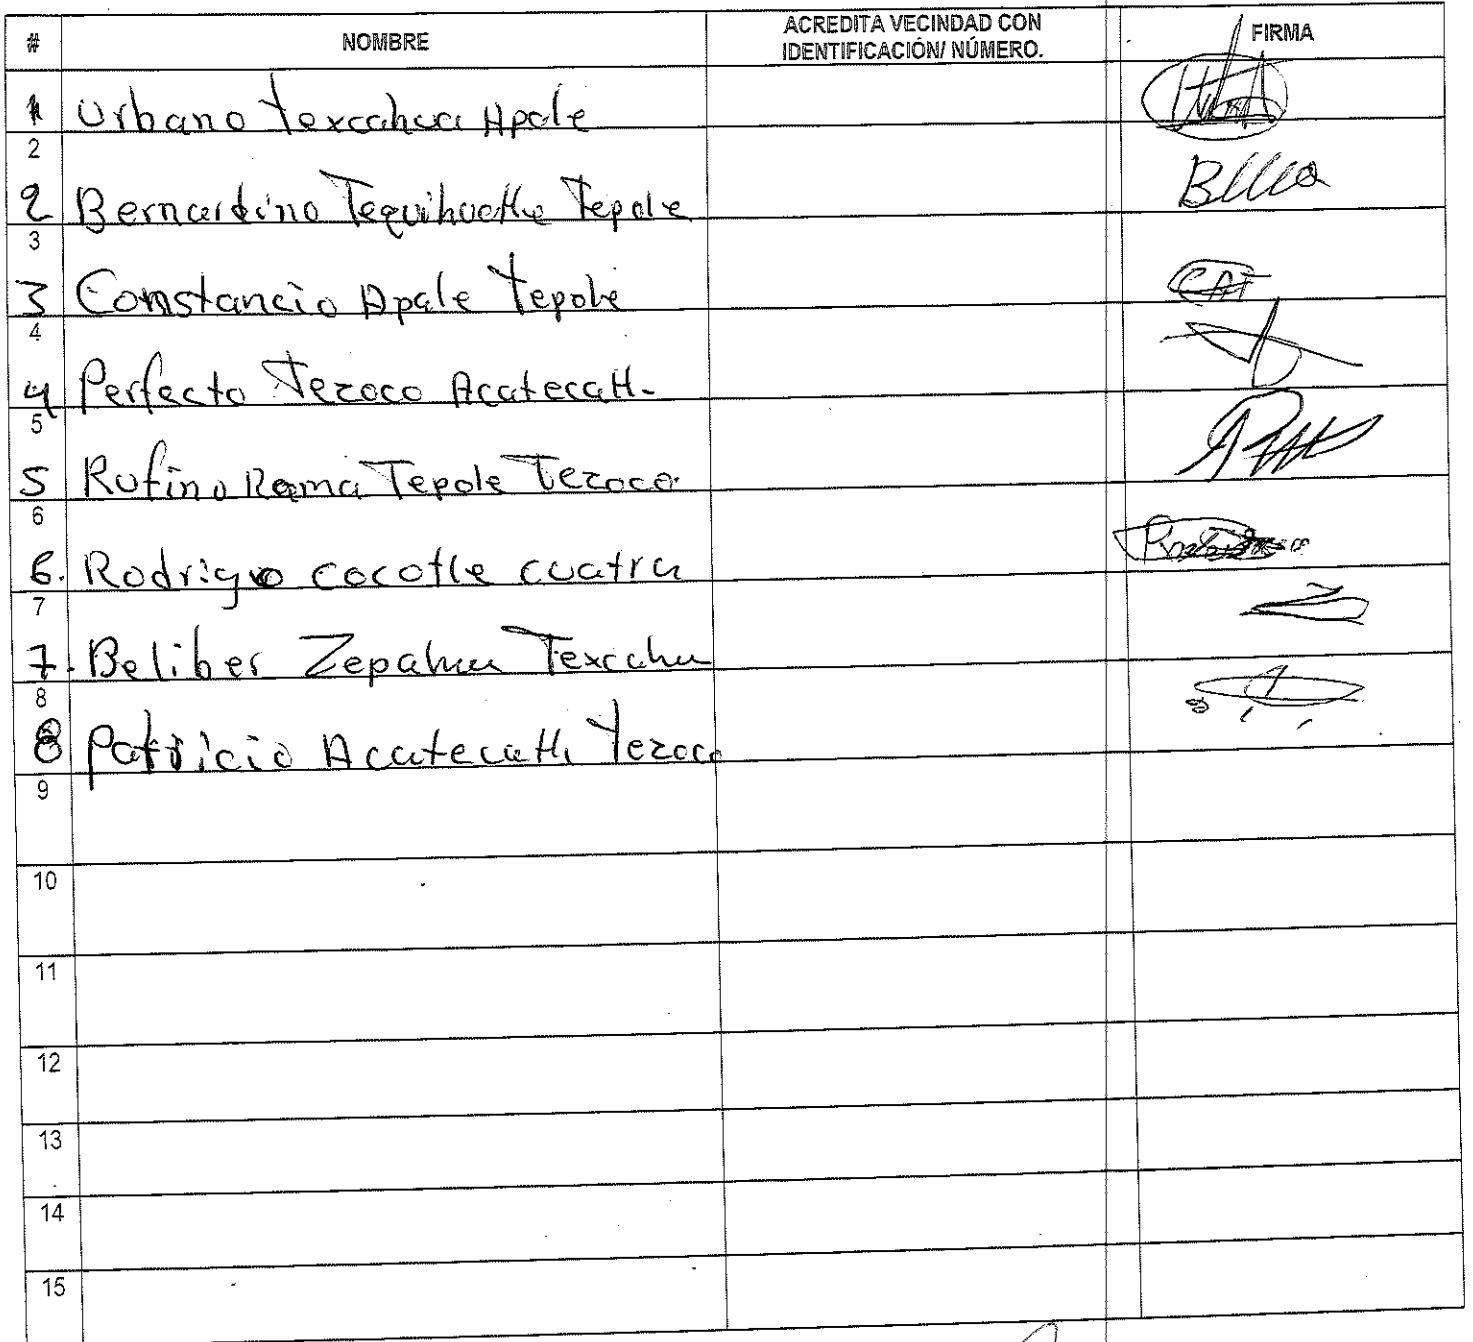 # NOMBRE ACREDITA VECINDAD CON IDENTIFICACIÓN/ NÚMERO. FIRMA
1 Urbano Texcahua Apale
2
2 Bernardino Tequihuatle Tepole
3
3 Constancio Apale Tepole CAT
4
4 Perfecto Tezoco Acatecatl
5
5 Rufino Rama Tepole Tezoco
6
6. Rodrigo cocotle cuatra
7
7. Beliber Zepahua Texcahu
8
8 Patricio Acatecatl Tezoco
9
10
11
12
13
14
15